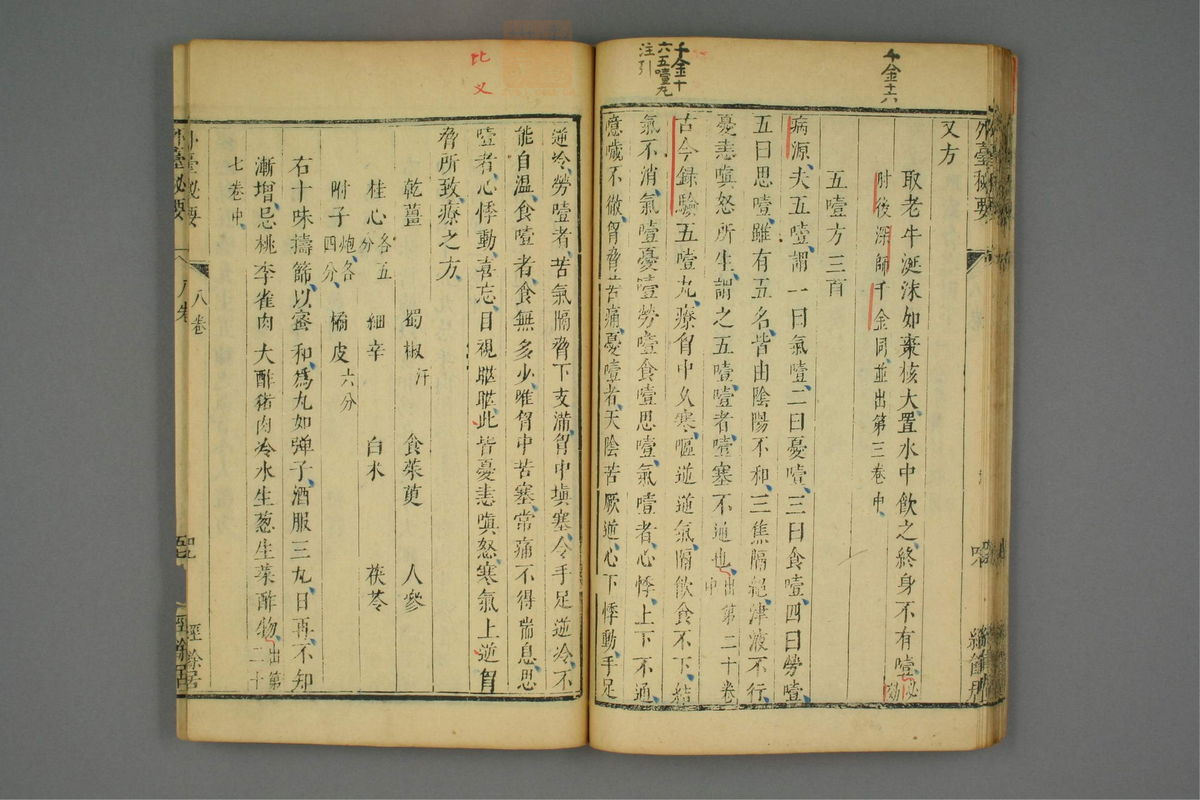 千金十六
千金十
六五噎丸
注引
外臺秘要
又方
取老牛涎沫如棗核大置水中飲之終身不有噎秘効
肘後深師千金同並出第三卷中
五噎方三首
病源夫五噎謂一曰氣噎二曰憂噎三曰食噎四曰勞噎
五曰思噎雖有五名皆由陰陽不和三焦隔絕津液不行
憂恚嗔怒所生謂之五噎噎者噎塞不通也出第二十卷中
古今録驗五噎丸療胷中久寒嘔逆逆氣隔飲食不下結
氣不消氣噎憂噎勞噎食噎思噎氣噎者心悸上下不通
噫噦不徹胷脅苦痛憂噎者天陰苦厥逆心下悸動手足
比又
逆冷勞噎者苦氣隔脅下支滿胷中塡塞令手足逆冷不
能自溫食噎者食無多少唯胷中苦塞常痛不得喘息思
噎者心悸動喜忘目視䀮䀮此皆憂恚嗔怒寒氣上逆胷
脅所致療之方
乾薑 蜀椒汗 食茱萸 人參
桂心各五分 細辛 白朮 茯苓
附子炮各四分 橘皮六分
右十味擣篩以蜜和為丸如弹子酒服三丸日再不知
漸增忌桃李雀肉大酢猪肉冷水生葱生菜酢物出第二十
七卷中
外臺秘要
八卷
經餘居